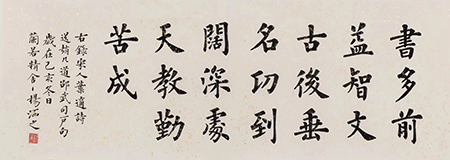 書多前
益智文
古後垂
名功到
闊深處
天教勤
苦成
右錄宋人葉適詩
送趙几道邵武司戶句
歲在己亥冬日
蘭若精舍楊之